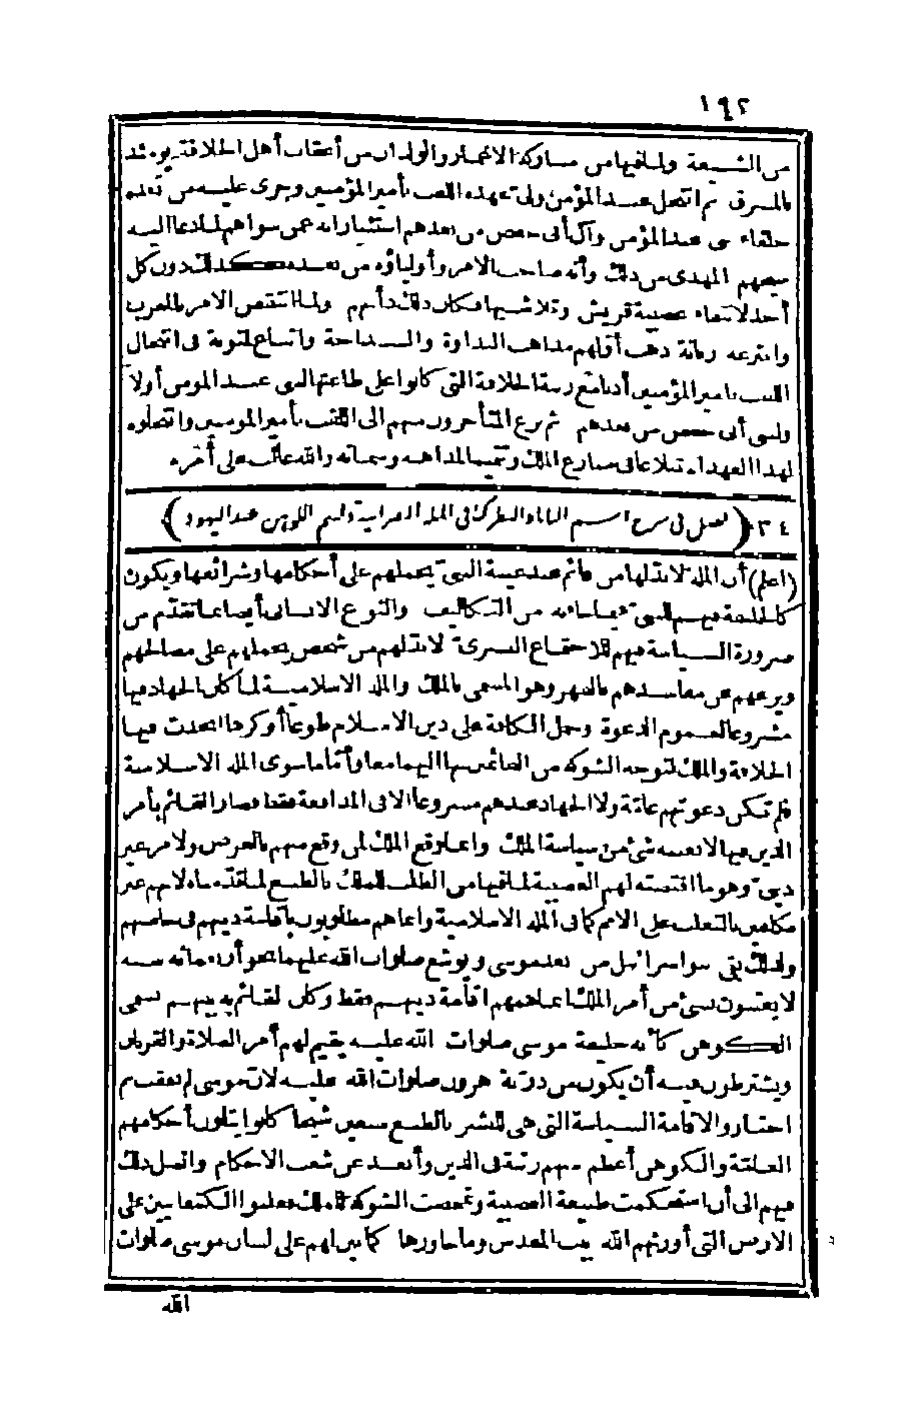 ١٩٢
من الشيعة ولما فيها من مشاركة الاغمار والولدان من أعقاب أهل الخلافة يومئذ
بالمشرق ثم انتحل عبد المؤمن ولى عهده اللقب بأمير المؤمنين وجرى عليه من بعده
خلفاء بنى عبد المؤمن وآل أبى حفص من بعدهم استئثارا به عمن سواهم لما دعا اليه
شيخهم المهدى من ذلك وأنه صاحب الامر وأولياؤه من بعده كذلك دون كل
أحد لانتفاء عصبية قريش وتلاشيها فكان ذلك دأبهم ولما انتقض الامر بالمغرب
وانتزعه زناتة ذهب أولهم مذاهب البداوة والسذاجة واتباع لمتونة فى انتحال
اللقب بأمير المؤمنين أدبا مع رتبة الخلافة التى كانوا على طاعتها لبنى عبد المؤمن أولا
ولبنى أبى حفص من بعدهم ثم نزع المتأخرون منهم الى اللقب بأمير المؤمنين وانتحلوه
لهذا العهد استبلاغا فى منازع الملك وتتميما لمذاهبه وسماته والله غالب على أمره
٣٤ (فصل فى شرح اسم البابا والبطرك فى الملة النصرانية واسم الكوهن عند اليهود)
(اعلم) أن الملة لا بد لها من قائم عند غيبة النبى يحملهم على أحكامها وشرائعها ويكون
كالخليفة فيهم للنبى فيما جاء به من التكاليف والنوع الانسانى أيضا بما تقدّم من
ضرورة السياسة فيهم للاجتماع البشرى لا بد لهم من شخص يحملهم على مصالحهم
ويزعهم عن مفاسدهم بالقهر وهو المسمى بالملك والملة الاسلامية لما كان الجهاد فيها
مشروعا لعموم الدعوة وحمل الكافة على دين الاسلام طوعا أو كرها اتحدت فيها
الخلافة والملك لتوجه الشوكة من القائمين بها اليهما معا وأمّا ما سوى الملة الاسلامية
فلم تكن دعوتهم عامّة ولا الجهاد عندهم مشروعا الا فى المدافعة فقط فصار القائم بأمر
الدين فيها لا يعنيه شئ من سياسة الملك وانما وقع الملك لمن وقع منهم بالعرض ولامر غير
دينى وهو ما اقتضته لهم العصبية لما فيها من الطلب للملك بالطبع لما قدّمناه لانهم غير
مكلفين بالتغلب على الامم كما فى الملة الاسلامية وانما هم مطلوبون باقامة دينهم فى خاصتهم
ولذلك بقى بنو اسرائيل من بعد موسى ويوشع صلوات الله عليهما نحو أربعمائة سنة
لا يعتنون بشئ من أمر الملك انما همهم اقامة دينهم فقط وكان القائم به بينهم يسمى
الكوهن كأنه خليفة موسى صلوات الله عليه يقيم لهم أمر الصلاة والقربان
ويشترطون فيه أن يكون من ذرّية هرون صلوات الله عليه لانّ موسى لم يعقب ثم
اختاروا لاقامة السياسة التى هى للبشر بالطبع سبعين شيخا كانوا يتلون أحكامهم
العامّة والكوهن أعظم منهم رتبة فى الدين وأبعد عن شغب الاحكام واتصل ذلك
فيهم الى أن استحكمت طبيعة العصبية وتمحضت الشوكة للملك فغلبوا الكنعانيين على
الارض التى أورثهم الله بيت المقدس وما جاورها كما بين لهم على لسان موسى صلوات
الله